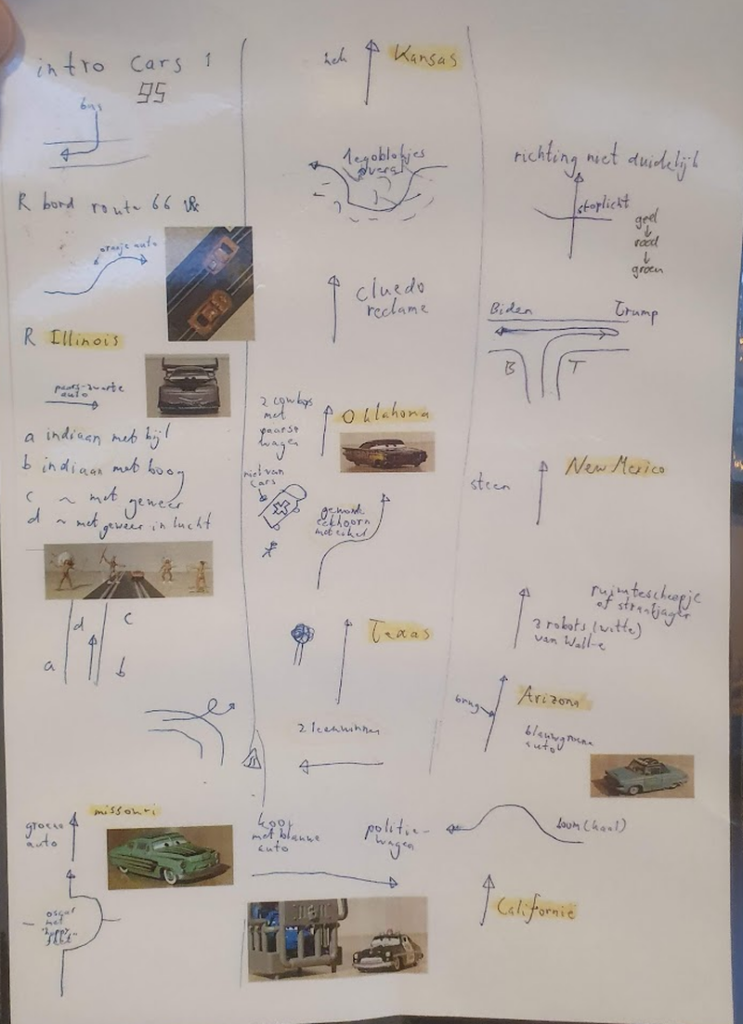 intro Cars 1
95
bus
R bord route 66
oranje auto
R Illinois
paars-zwarte
auto
a indiaan met bijl
b indiaan met boog
c ~ met geweer
d ~ met geweer in lucht
d
c
a
b
missouri
groene
auto
oscar
met
hek
Kansas
legoblokjes
overal
cluedo
reclame
2 cowboys
met
paarse
wagen
Oklahoma
niet van
cars
eekhoorn
met eikel
Texas
2 leeuwinnen
kooi
met blauwe
auto
politie-
wagen
richting niet duidelijk
stoplicht
geel
↓
rood
↓
groen
Biden
Trump
B
T
steen
New Mexico
ruimtescheepje
of straaljager
2 robots (witte)
van Wall-e
brug
Arizona
blauwgroene
auto
boom (kaal)
Californië